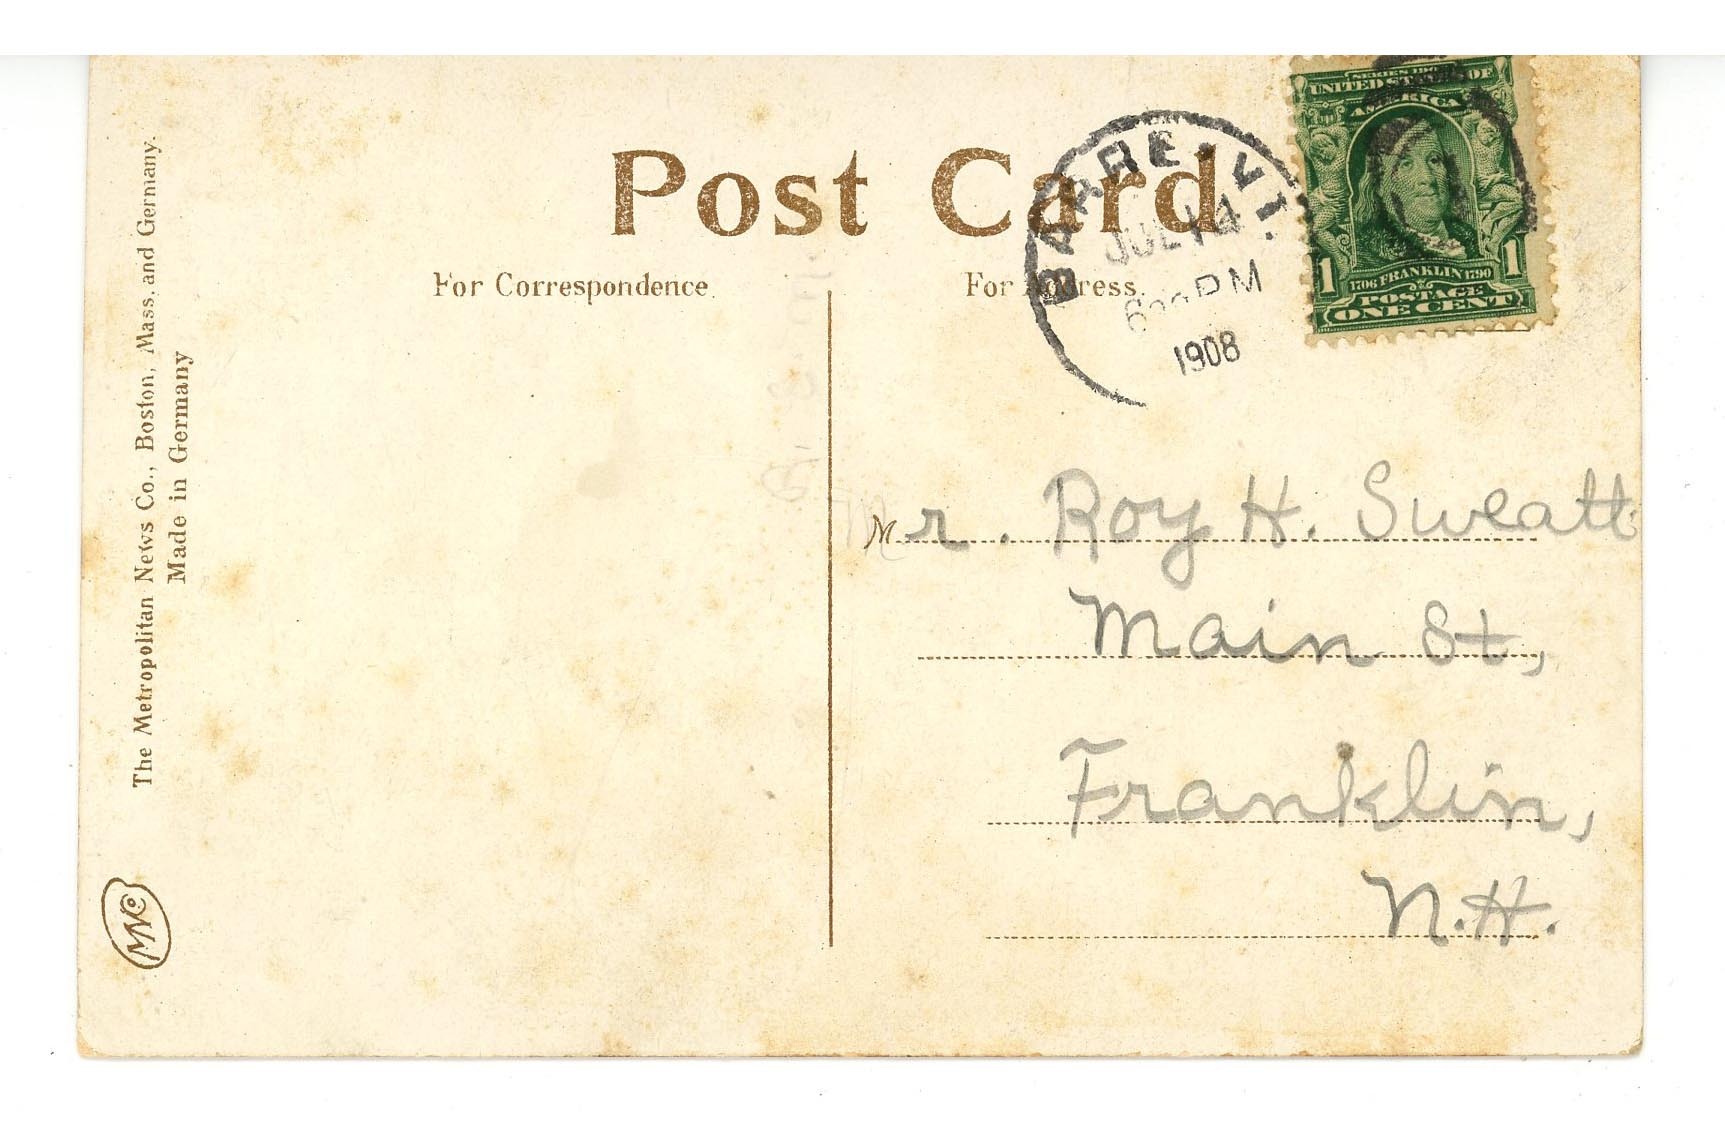 Post Card
For Correspondence.
For Address.
BARRE, VT.
JUL 14
PM
1908
SERIES 1902
UNITED STATES OF
AMERICA
1 FRANKLIN 1
1706 1790
POSTAGE
ONE CENT
Mr. Roy H. Sweatt
Main St,
Franklin,
N.H.
The Metropolitan News Co., Boston, Mass. and Germany.
Made in Germany
MNCo